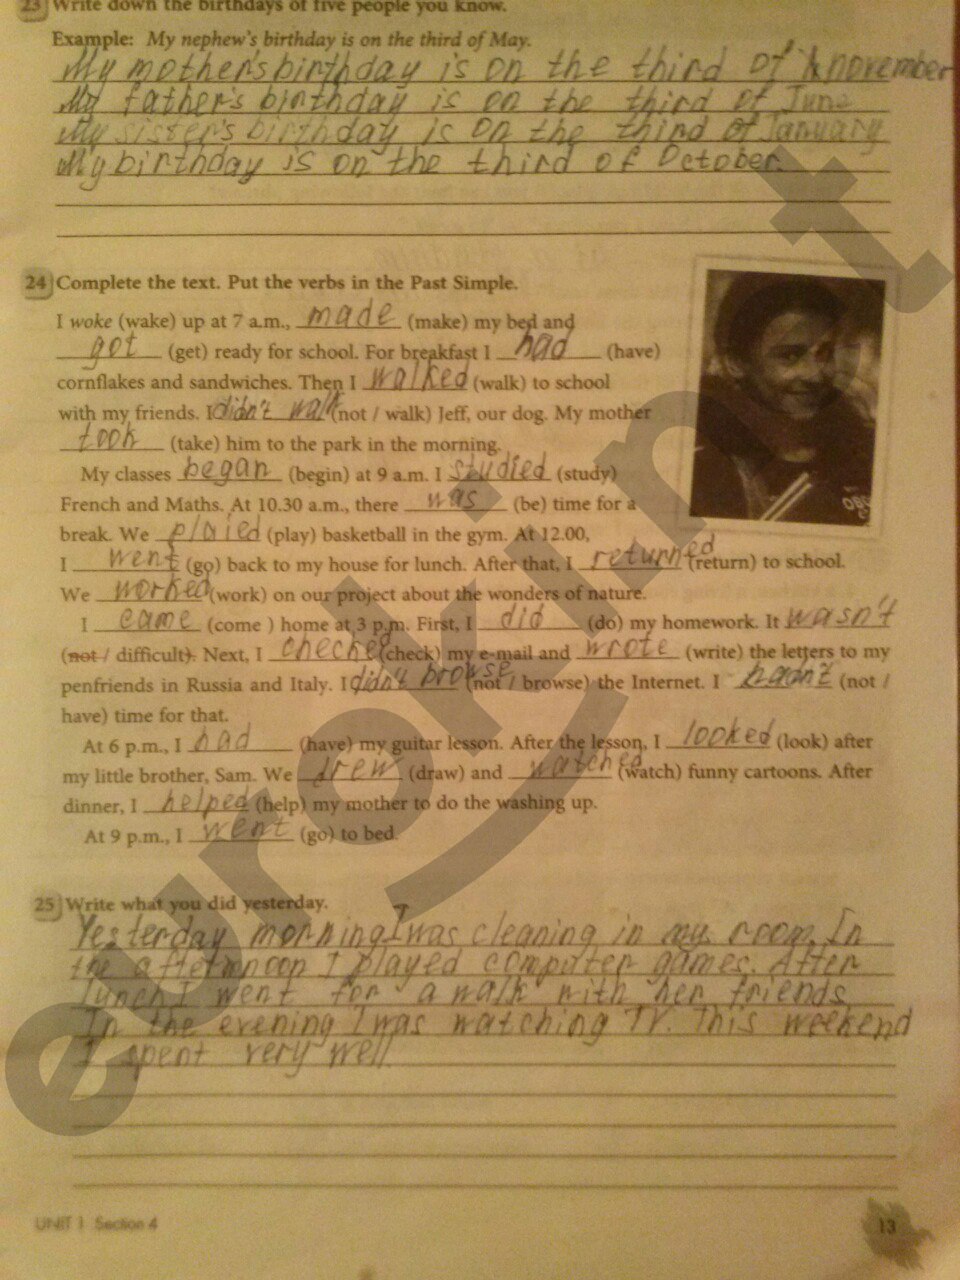 23 Write down the birthdays of five people you know.
Example: My nephew's birthday is on the third of May.
My mother's birthday is on the third of november
My father's birthday is on the third of June
My sister's birthday is on the third of January
My birthday is on the third of October.
24 Complete the text. Put the verbs in the Past Simple.
I woke (wake) up at 7 a.m., made (make) my bed and
got (get) ready for school. For breakfast I had (have)
cornflakes and sandwiches. Then I walked (walk) to school
with my friends. I didn't walk (not / walk) Jeff, our dog. My mother
took (take) him to the park in the morning.
My classes began (begin) at 9 a.m. I studied (study)
French and Maths. At 10.30 a.m., there was (be) time for a
break. We plaied (play) basketball in the gym. At 12.00,
I went (go) back to my house for lunch. After that, I returned (return) to school.
We worked (work) on our project about the wonders of nature.
I came (come ) home at 3 p.m. First, I did (do) my homework. It wasn't
(not / difficult). Next, I checked (check) my e-mail and wrote (write) the letters to my
penfriends in Russia and Italy. I didn't browse (not / browse) the Internet. I hadn't (not /
have) time for that.
At 6 p.m., I had (have) my guitar lesson. After the lesson, I looked (look) after
my little brother, Sam. We drew (draw) and watched (watch) funny cartoons. After
dinner, I helped (help) my mother to do the washing up.
At 9 p.m., I went (go) to bed.
25 Write what you did yesterday.
Yesterday morning I was cleaning in my room. In
the aftermnoon I played computer games. After
lunch I went for a walk with her friends
In the evening I was watching TV. This weekend
I spent very well
UNIT 1 Section 4
13
eurokint